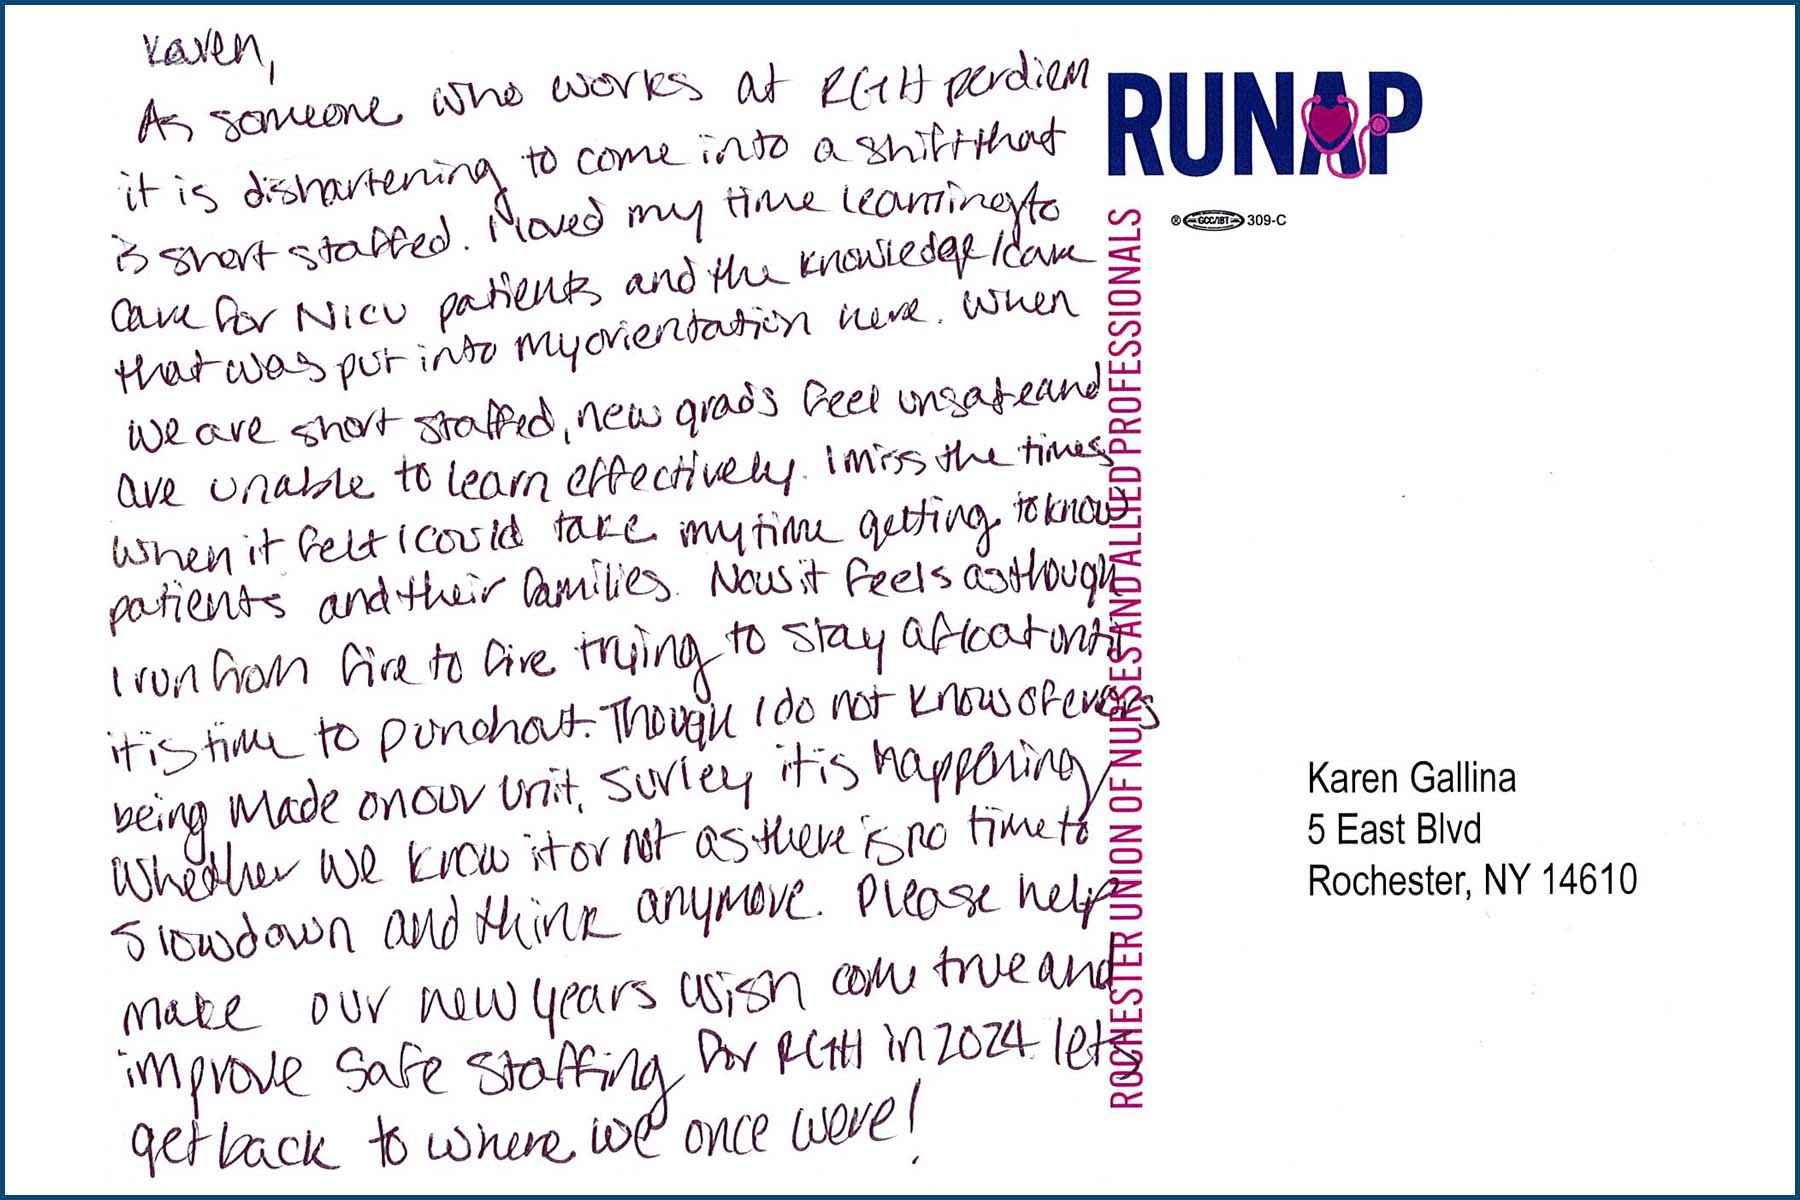 Karen,
As someone who works at RGH perdiem
it is dishartening to come into a shift that
is short staffed. I loved my time learning to
care for NICU patients and the knowledge/care
that was put into my orientation here. When
we are short staffed, new grads feel unsafe and
are unable to learn effectively. I miss the times
when it felt I could take my time getting to know
patients and their families. Now it feels as though
I run from fire to fire trying to stay afloat until
it is time to punch out. Though I do not know of errors
being made on our unit, surley it is happening
whether we know it or not as there is no time to
slow down and think anymore. Please help
make our new years wish come true and
improve safe staffing for RGH in 2024 lets
get back to where we once were!
RUNAP
® GCC/IBT 309-C
ROCHESTER UNION OF NURSES AND ALLIED PROFESSIONALS
Karen Gallina
5 East Blvd
Rochester, NY 14610